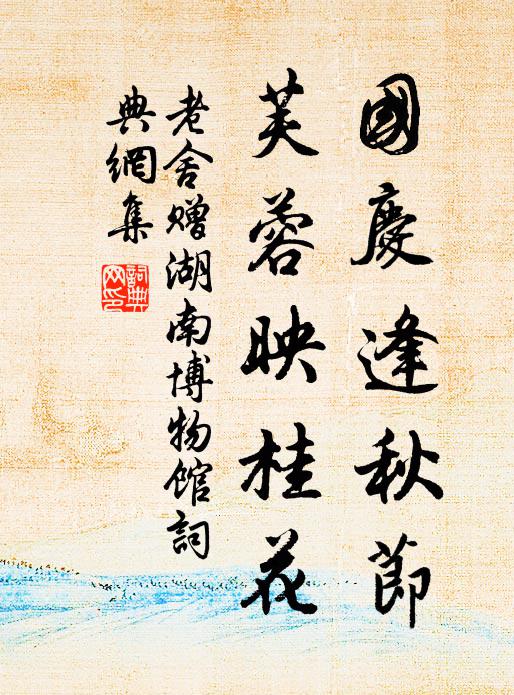 國慶逢秋節
芙蓉映桂花
老舍赠湖南博物馆詞
典網集
詞典
网印